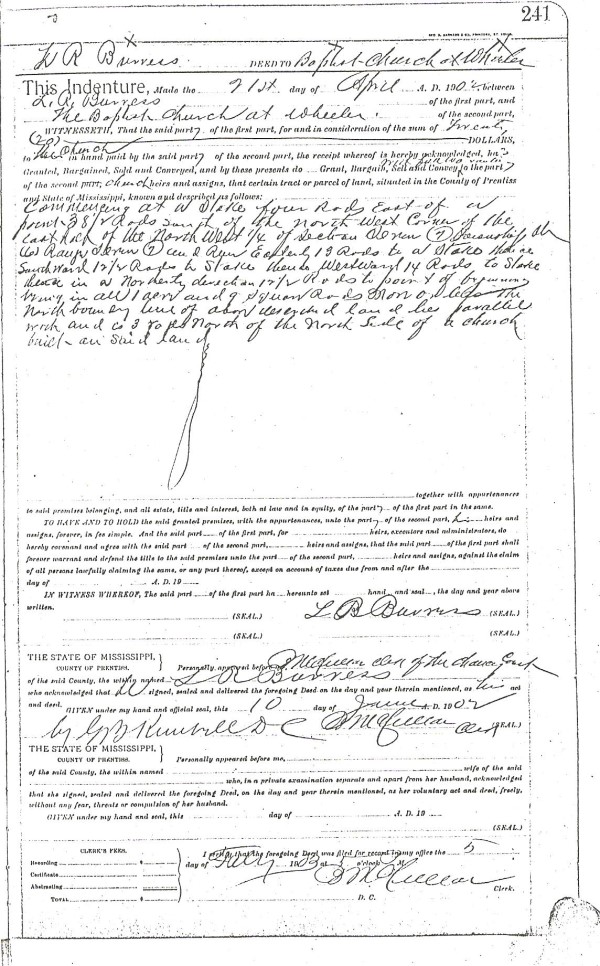 241
L R Burress DEED TO Baptist Church at Wheeler
This Indenture, Made the 21st day of April A. D. 1902 between
L. R. Burress of the first part, and
The Baptist Church at Wheeler. of the second part,
WITNESSETH, That the said party of the first part, for and in consideration of the sum of Twenty
(20) DOLLARS,
to in hand paid by the said party of the second part, the receipt whereof is hereby acknowledged, has
Granted, Bargained, Sold and Conveyed, and by these presents do Grant, Bargain, Sell and Convey to the party
of the second part, church heirs and assigns, that certain tract or parcel of land, situated in the County of Prentiss
and State of Mississippi, known and described as follows:
Commencing at a Stake four Rods East of a
point 38 1/2 Rods South of the North West Corner of the
East half of the North West 1/4 of Section Seven (7) Township
Range Seven 7 and Run Easterly 13 Rods to a Stake thence
Southward 12 1/2 Rods to Stake thence Westward 14 Rods to Stake
thence in a Northerly direction 12 1/2 Rods to point of beginning
being in all 1 acre and 9 Square Rods more or less The
North boundry line of above described land lies parallel
with and is 3 North of the North Side of a church
built on said land
together with appurtenances
to said premises belonging, and all estate, title and interest, both at law and in equity, of the party of the first part in the same.
TO HAVE AND TO HOLD the said granted premises, with the appurtenances, unto the party of the second part, heirs and
assigns, forever, in fee simple. And the said part of the first part, for heirs, executors and administrators, do
hereby covenant and agree with the said part of the second part, heirs and assigns, that the said part of the first part shall
forever warrant and defend the title to the said premises unto the part of the second part, heirs and assigns, against the claim
of all persons lawfully claiming the same, or any part thereof, except on account of taxes due from and after the
day of A. D. 19
IN WITNESS WHEREOF, The said part of the first part ha hereunto set hand and seal, the day and year above
written. L B Burress (SEAL.)
(SEAL.)
(SEAL.) (SEAL.)
THE STATE OF MISSISSIPPI,
COUNTY OF PRENTISS. Personally appeared before clerk of the Chancery Court
of the said County, the within named L R Burress
who acknowledged that he signed, sealed and delivered the foregoing Deed on the day and year therein mentioned, as his act
and deed. GIVEN under my hand and official seal, this 10 day of June A. D. 1902
by D C Clerk (SEAL)
THE STATE OF MISSISSIPPI,
COUNTY OF PRENTISS. Personally appeared before me,
of the said County, the within named wife of the said
who, in a private examination separate and apart from her husband, acknowledged
that she signed, sealed and delivered the foregoing Deed, on the day and year therein mentioned, as her voluntary act and deed, freely,
without any fear, threats or compulsion of her husband.
GIVEN under my hand and seal, this day of A. D. 19
(SEAL.)
CLERK'S FEES.
Recording $
Certificate
Abstracting
TOTAL $
I certify that the foregoing Deed was filed for record in my office the 5
day of 1903 at o'clock M.
Clerk.
D. C.